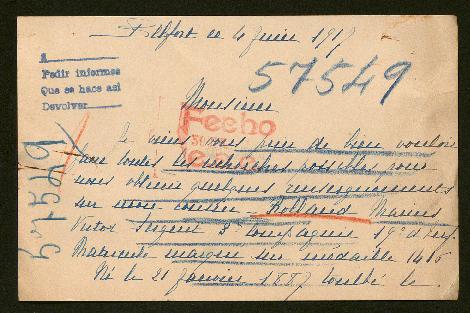 Belfort le 4 Juin 1917
57549
A
Pedir informes
Que se hace asi
Devolver
Monsieur
Fecho
Je viens vous prier de bien vouloir
faire toutes les recherches possibles pour
nous obtenir quelques renseignements
sur mon cousin Rolland Marius
Victor Sergent 3 compagnie 19e d'inf.
Matricule marqué sur médaille 1416
Né le 21 Janvier 1887 tombé le
57549